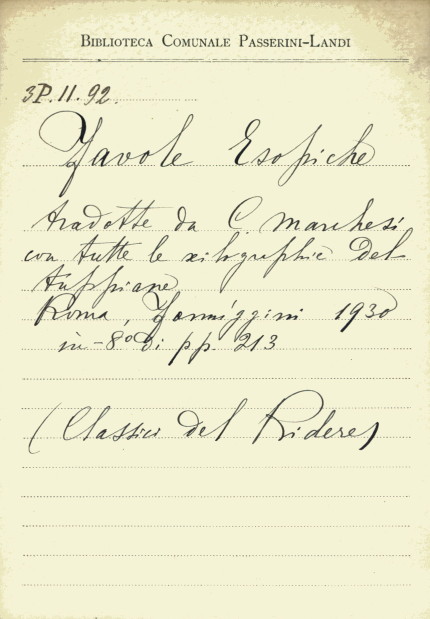 BIBLIOTECA COMUNALE PASSERINI-LANDI
3P.11.92.
Favole Esopiche
tradotte da C. Marchesi
con tutte le xilographie del
tuppiane
Roma, Formiggini 1930
in-8° di pp. 213
(Classici del Ridere)